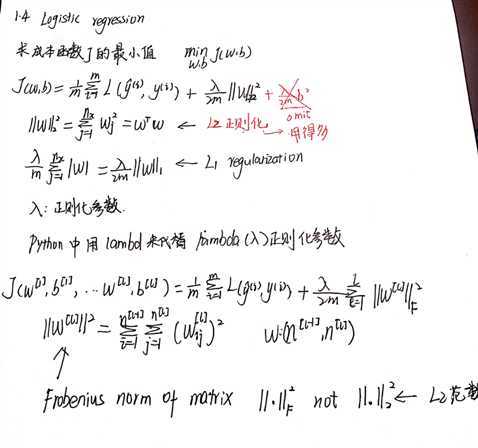 1.4 Logistic regression
求成本函数J的最小值 min w,b J(w,b)
J(w,b) = 1/m ∑_{i=1}^{m} L(ŷ^(i), y^(i)) + λ/2m ||w||_2^2 + λ/2m b^2 omit
||w||_2^2 = ∑_{j=1}^{nx} wj^2 = w^T w ← L2 正则化 → 用得多
λ/m ∑_{j=1}^{nx} |w| = λ/2m ||w||_1 ← L1 regularization
λ: 正则化参数.
Python 中用 lambd 来代替 lambda (λ) 正则化参数
J(w^[1], b^[1], ... w^[L], b^[L]) = 1/m ∑_{i=1}^{m} L(ŷ^(i), y^(i)) + λ/2m ∑_{l=1}^{L} ||w^[l]||_F^2
||w^[l]||^2 = ∑_{i=1}^{n^[l-1]} ∑_{j=1}^{n^[l]} (w_{ij}^[l])^2 w:(n^[l-1], n^[l])
Frobenius norm of matrix ||·||_F^2 not ||·||_2^2 ← L2范数